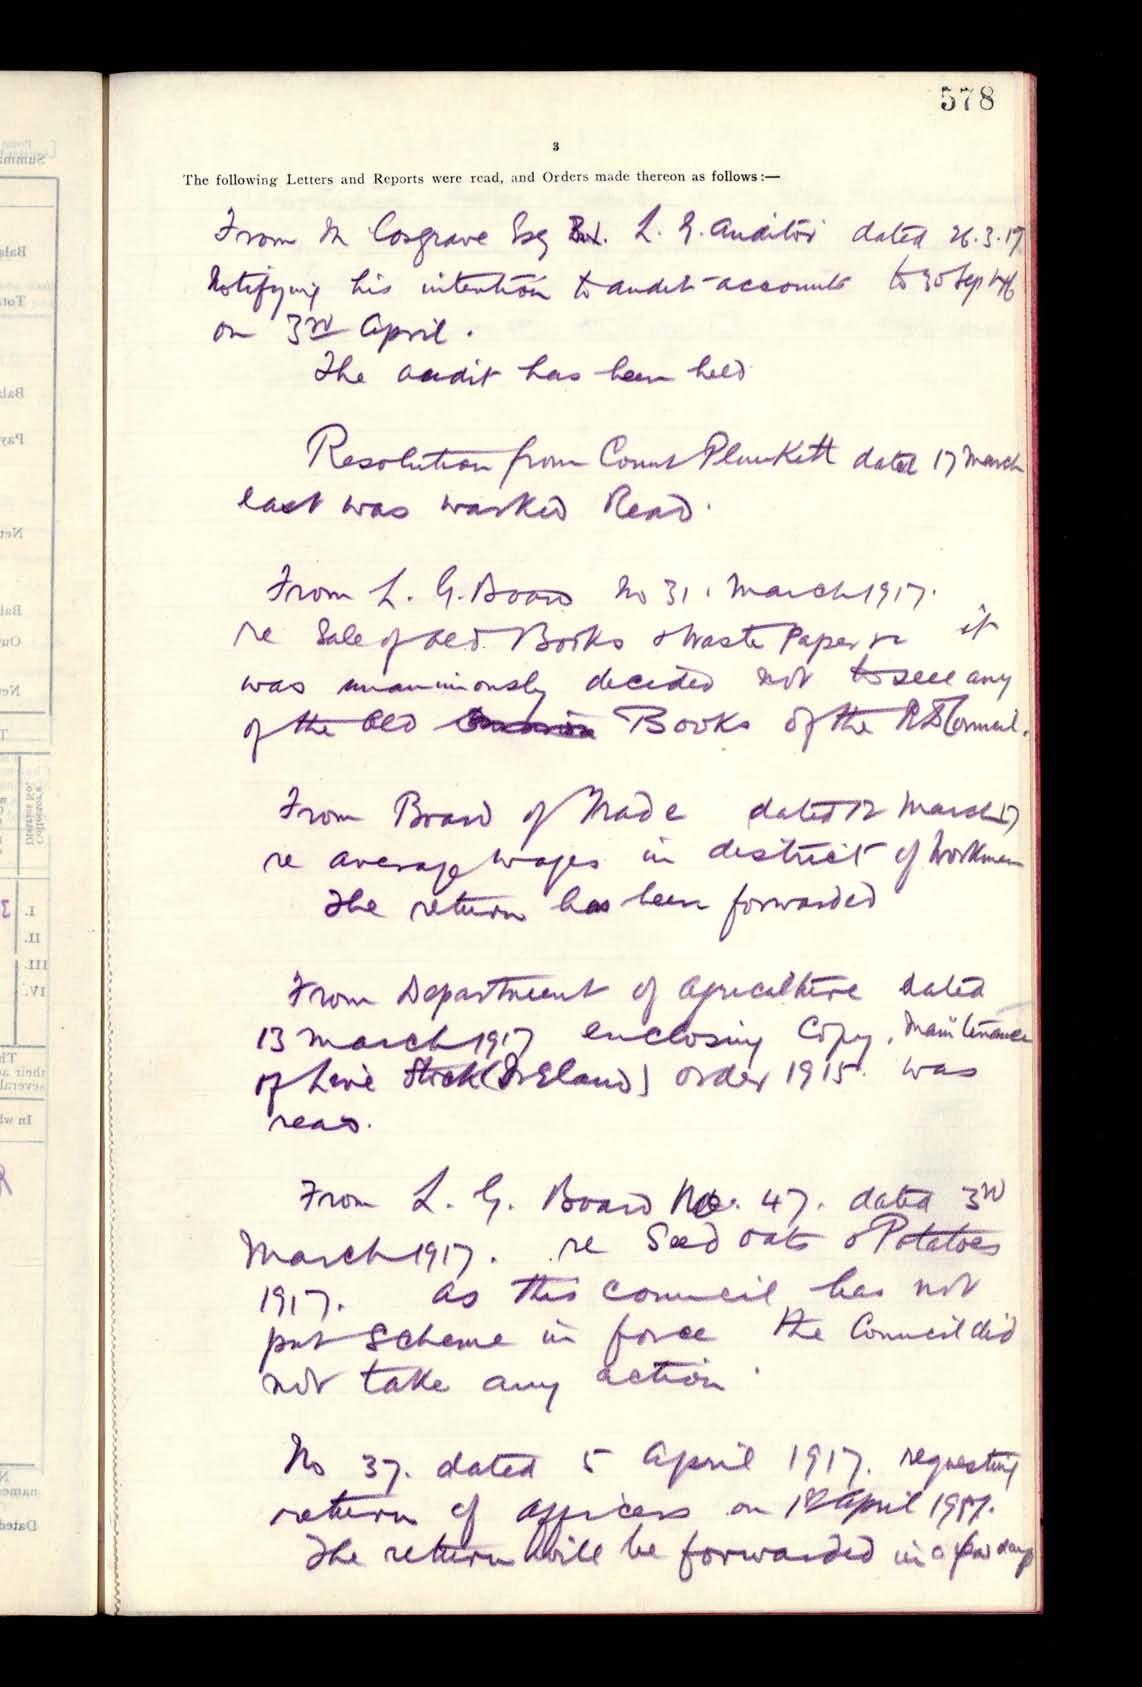 578
3
The following Letters and Reports were read, and Orders made thereon as follows:—
From M Cosgrave Esq L. G. Auditor dated 26.3.17
Notifying his intention to audit accounts to 30 Sept
on 3rd April.
The audit has been held
Resolution from Count Plunkett dated 17 March
last was marked Read.
From L. G. Board No 31. March 1917.
re Sale of old Books & Waste Paper it
was unanimously decided not to sell any
of the old Books of the R D Council.
From Board of Trade dated 12 March 17
re average wages in district of Workmen
The return has been forwarded
From Department of Agriculture dated
13 March 1917 enclosing Copy, Maintenance
of Live Stock (Ireland) order 1915. was
read.
From L. G. Board No. 47. dated 3rd
March 1917. re Seed oats & Potatoes
1917. as this council has not
put Scheme in force the Council did
not take any action.
No 37. dated 5 April 1917. requesting
return of officers on 1st April 1917.
The return will be forwarded in a few days
Summ
Bala
Tot
Bala
Pay
Net
Bala
Ou
Ne
T
Collector's
District No.
I.
II.
III.
IV.
Th
their a
several
In wh
N
name
Dated